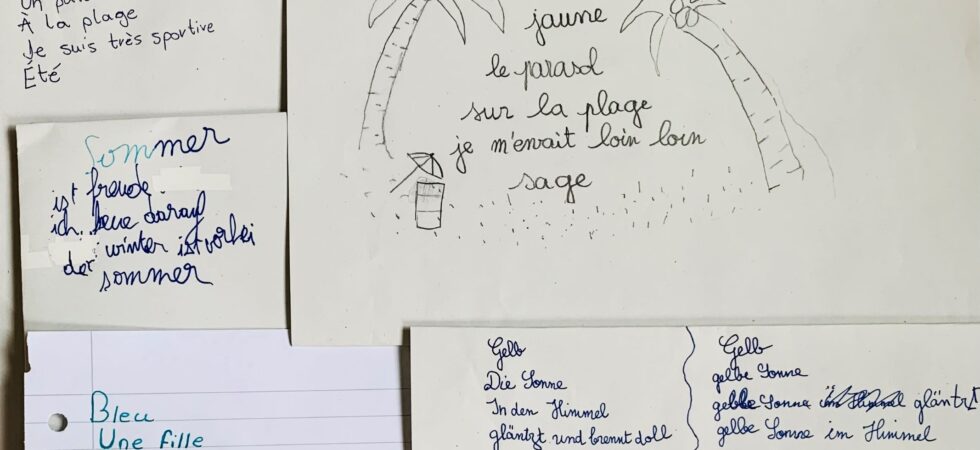 À la plage
Je suis très sportive
Été
jaune
le parasol
sur la plage
je m'envait loin loin
sage
Sommer
ist freude
ich darauf
der winter ist vorbei
sommer
Bleu
Une fille
Gelb
Die Sonne
In den Himmel
gläntzt und brennt doll
Gelb
gelbe Sonne
gelbe Sonne gläntzt
gelbe Sonne im Himmel